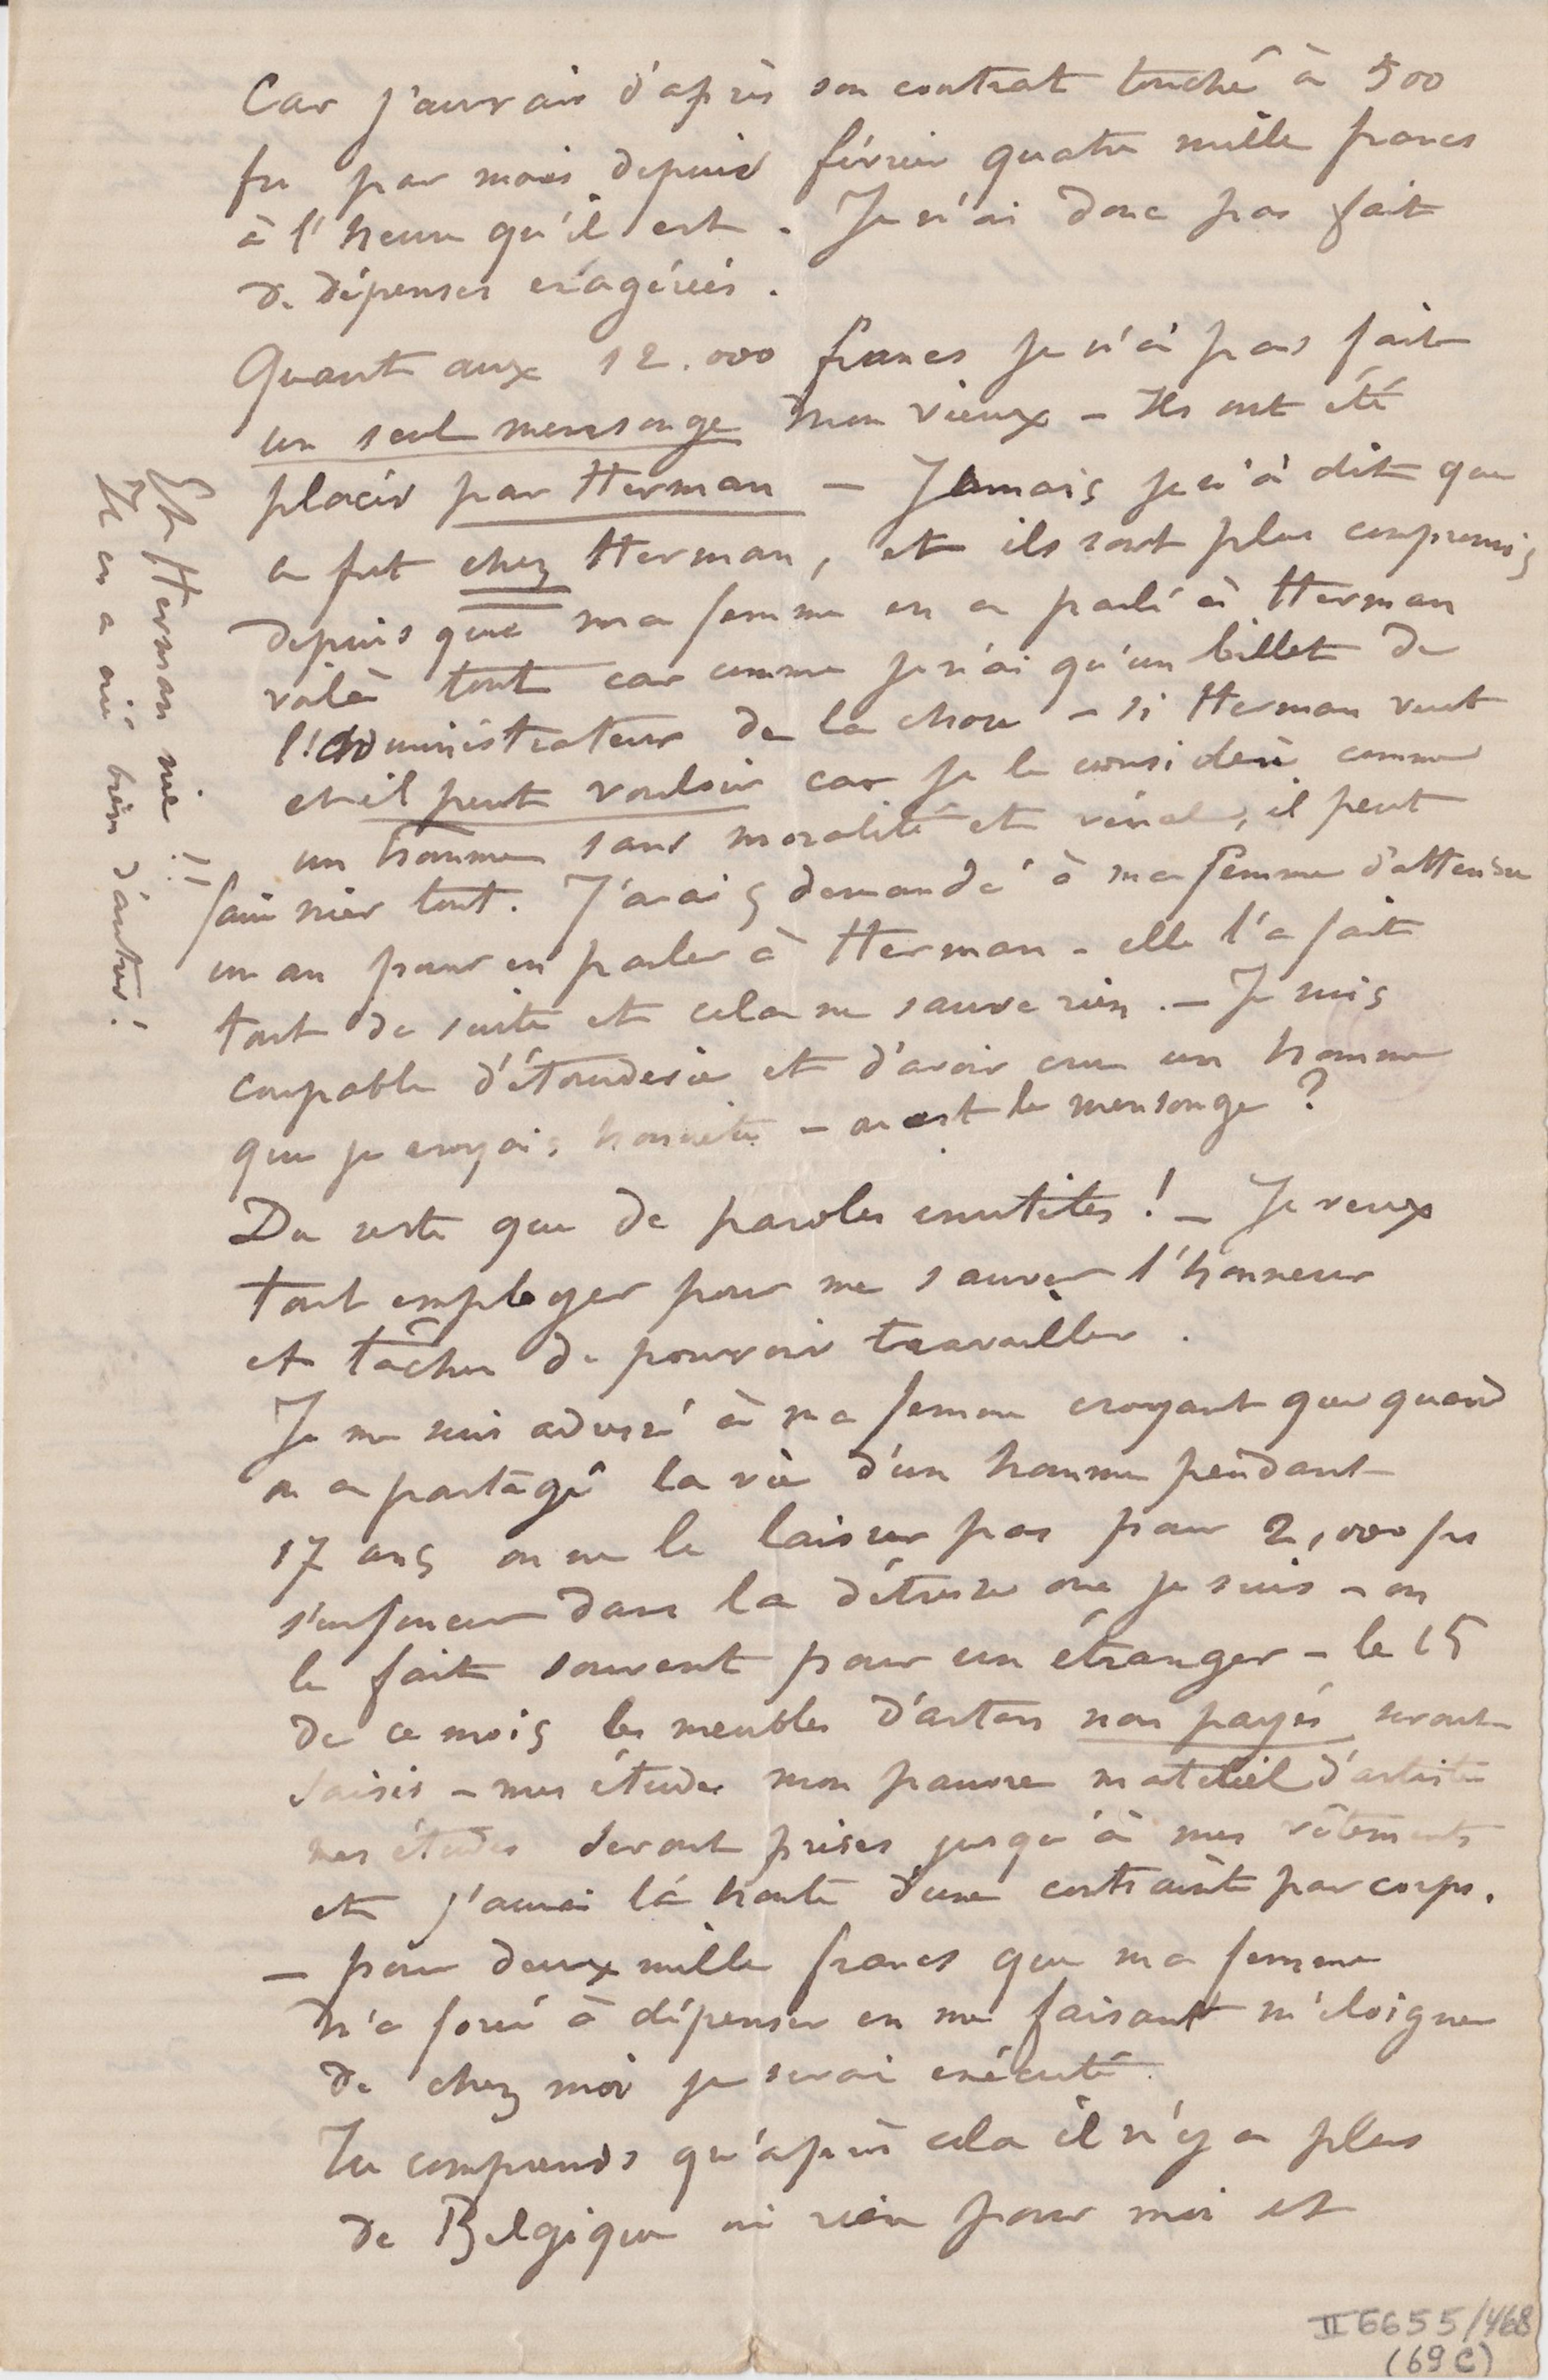 Car j'aurais d'après son contrat touché à 500
frs par mois depuis février quatre mille francs
à l'heure qu'il est. Je n'ai donc pas fait
de dépenses exagérées.
Quant aux 12.000 francs je n'ai pas fait
un seul mensonge mon vieux – Ils ont été
placés par Herman – Jamais je n'ai dit que
ce fut chez Herman, et ils sont plus compromis
depuis que ma femme en a parlé à Herman
voilà tout car comme je n'ai qu'un billet de
l'administrateur de la chose – si Herman veut
et il peut vouloir car je le considère comme
un homme sans moralité et vénal, il peut
faire nier tout. J'avais demandé à ma femme d'attendre
un an pour en parler à Herman – elle l'a fait
tout de suite et cela ne sauve rien. – Je suis
coupable d'étourderie et d'avoir cru un homme
que je croyais honnête – où est le mensonge ?
Du reste que de paroles inutiles ! – Je veux
tout employer pour me sauver l'honneur
et tâcher de pouvoir travailler.
Je me suis adressé à ma femme croyant que quand
on a partagé la vie d'un homme pendant
17 ans on ne le laisse pas pour 2,000 frs
s'enfoncer dans la détresse où je suis – on
le fait souvent pour un étranger – le 15
de ce mois les meubles d'artan non payés seront
saisis – mes études mon pauvre matériel d'artiste
mes études seront prises jusqu'à mes vêtements
et j'aurai la honte d'une contrainte par corps.
– pour deux mille francs que ma femme
m'a forcé à dépenser en me faisant m'éloigner
de chez moi je serai exécuté.
Tu comprends qu'après cela il n'y a plus
de Belgique ni rien pour moi et
Et Herman nie !!
Il en a nié bien d'autres !
II 6655/468
(69 C)